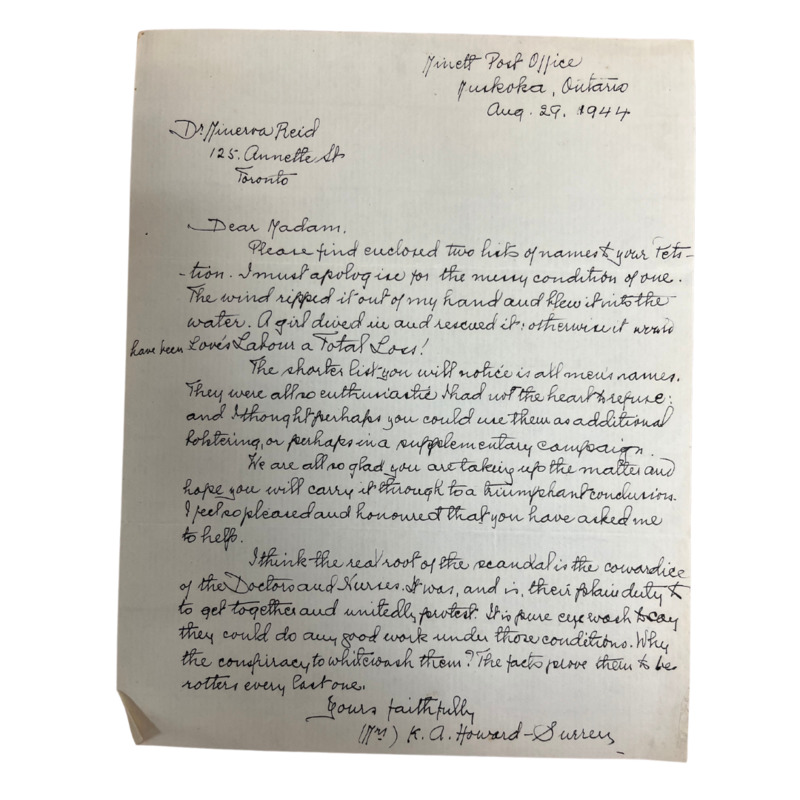 Minett Post Office
Muskoka, Ontario
Aug. 29. 1944
Dr Minerva Reid
125. Annette St
Toronto
Dear Madam.
Please find enclosed two lists of names to your Peti-
-tion. I must apologise for the messy condition of one.
The wind ripped it out of my hand and blew it into the
water. A girl dived in and rescued it: otherwise it would
have been Love's Labour a Total Loss!
The shorter list you will notice is all men's names.
They were all so enthusiastic I had not the heart to refuse:
and I thought perhaps you could use them as additional
bolstering, or perhaps in a supplementary campaign.
We are all so glad you are taking up the matter and
hope you will carry it through to a triumphant conclusion.
I feel so pleased and honoured that you have asked me
to help.
I think the real root of the scandal is the cowardice
of the Doctors and Nurses. It was, and is, their plain duty to
to get together and unitedly protest. It is pure eye wash to say
they could do any good work under those conditions. Why
the conspiracy to whitewash them? The facts prove them to be
rotters every last one.
Yours faithfully
(Mrs) K. A. Howard-Surrey